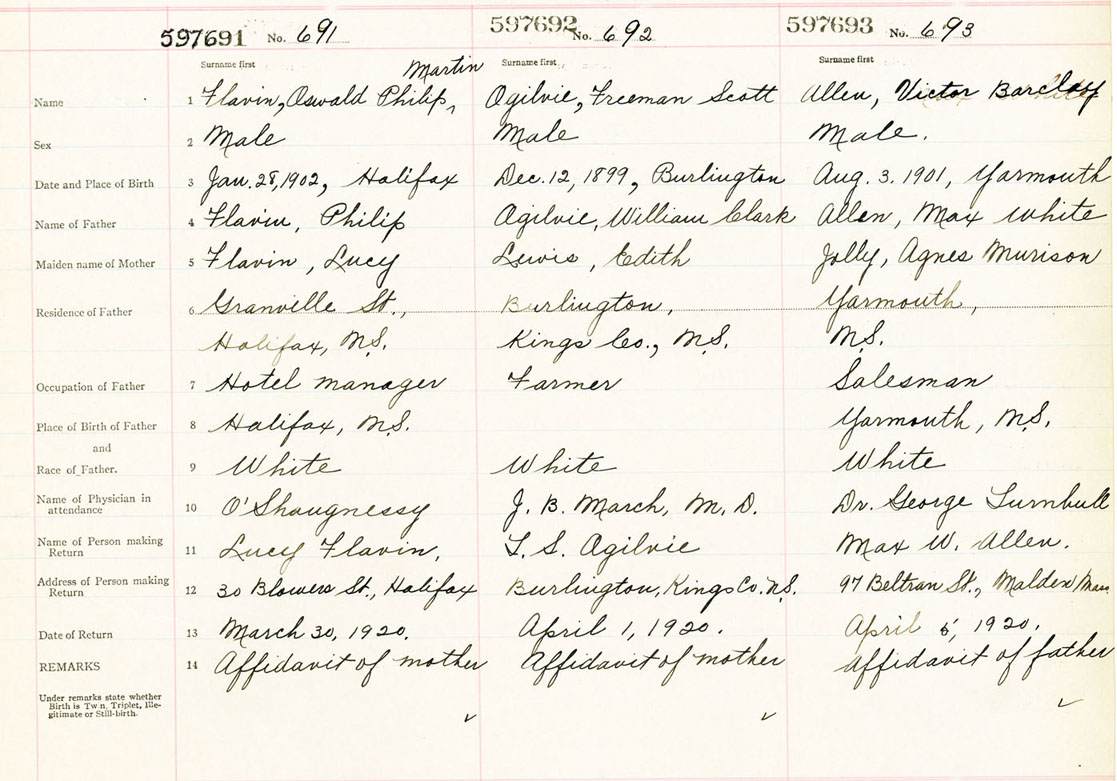 597691 No. 691 597692 No. 692 597693 No. 693
Surname first Surname first Surname first
Martin
Name 1 Flavin, Oswald Philip, Ogilvie, Freeman Scott Allen, Victor Barclay
Sex 2 Male Male Male.
Date and Place of Birth 3 Jan. 28, 1902, Halifax Dec. 12, 1899, Burlington Aug. 3. 1901, Yarmouth
Name of Father 4 Flavin, Philip Ogilvie, William Clark Allen, Max White
Maiden name of Mother 5 Flavin, Lucy Lewis, Edith Jolly, Agnes Murison
Residence of Father 6 Granville St., Burlington, Yarmouth,
Halifax, N.S. Kings Co., N.S. N.S.
Occupation of Father 7 Hotel manager Farmer Salesman
Place of Birth of Father 8 Halifax, N.S. Yarmouth, N.S.
and
Race of Father. 9 White White White
Name of Physician in
attendance 10 O'Shaugnessy J. B. March, M. D. Dr. George Turnbull
Name of Person making
Return 11 Lucy Flavin, L. S. Ogilvie Max W. Allen.
Address of Person making
Return 12 30 Blowers St., Halifax Burlington, Kings Co. N.S. 97 Beltran St., Malden Mass
Date of Return 13 March 30, 1920. April 1, 1920. April 5, 1920.
REMARKS 14 Affidavit of mother Affidavit of mother Affidavit of father
Under remarks state whether
Birth is Twin, Triplet, Ille-
gitimate or Still-birth.